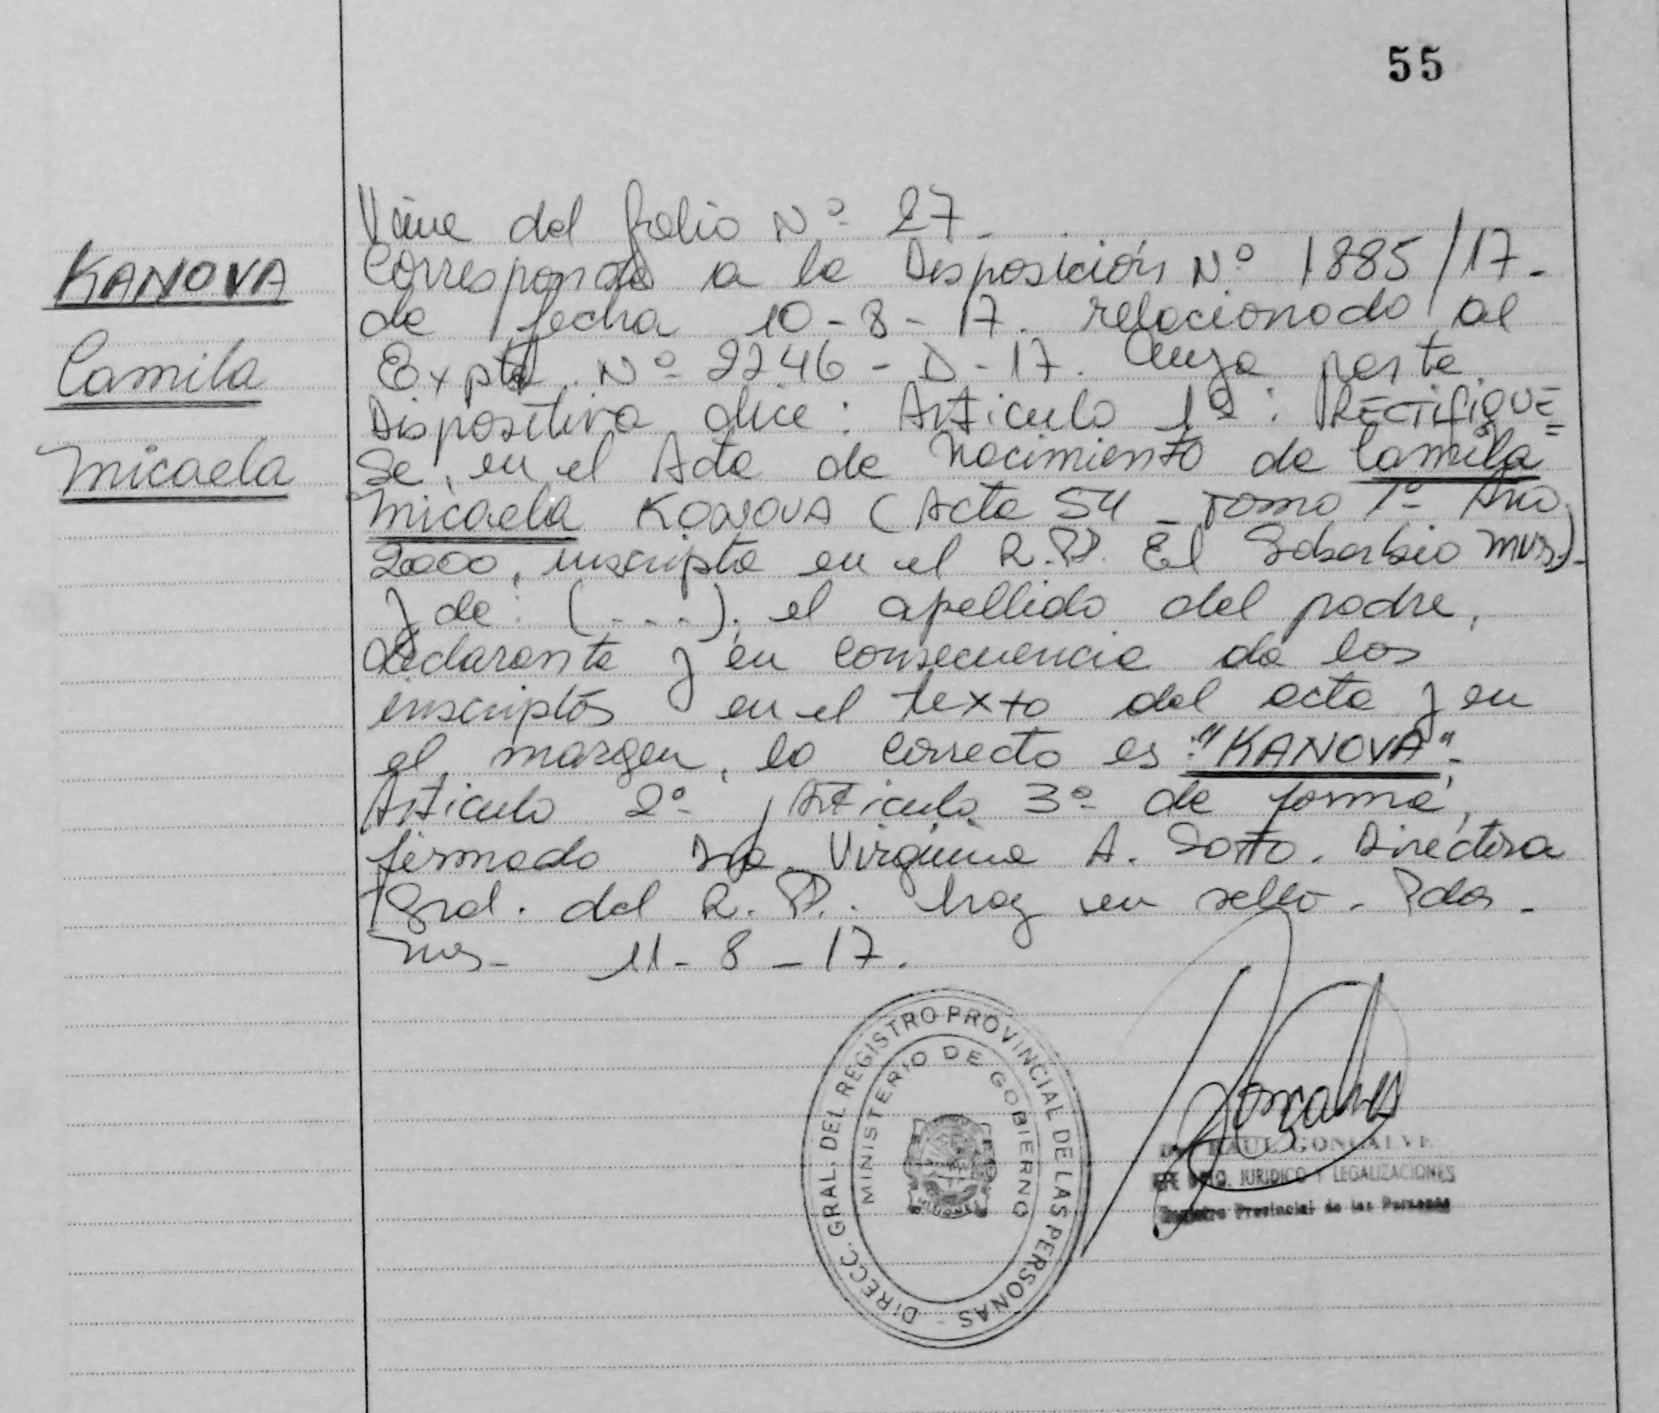 55
KANOVA
Camila
Micaela
Viene del folio Nº 27.
Corresponde a la Disposición Nº 1885/17.
de fecha 10-8-17. relacionado al
Expte. Nº 2246-D-17. Cuya parte
Dispositiva dice: Artículo 1º: RECTIFIQUE=
se, en el Acta de Nacimiento de Camila
Micaela KONOVA (Acta 54 - Tomo 1º Año
2000, inscripta en el R.P. El Soberbio Mns)-
y de: (...), el apellido del padre,
declarante y en consecuencia de los
inscriptos en el texto del acta y en
el margen, lo correcto es: "KANOVA".
Artículo 2º y Artículo 3º de forma,
firmado Virginia A. Directora
Gral. del R.P.. hay un sello. Pdas.
Mns- 11-8-17.
DIRECC. GRAL. DEL REGISTRO PROVINCIAL DE LAS PERSONAS -
MINISTERIO DE GOBIERNO
MISIONES
RAUL GONCALVE
JURIDICO Y LEGALIZACIONES
Registro Provincial de las Personas